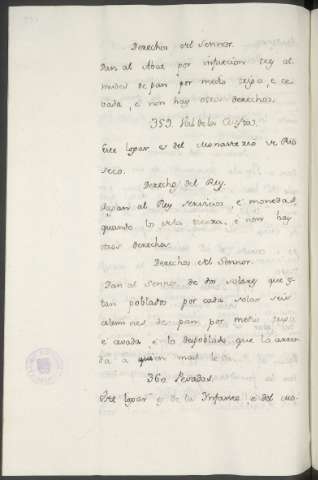 Derechos del Sennor.
Dan al Abat por infurcion sey al
mudes de pan por medio trigo, e ce
vada, e non hay otros derechos.
359.
Este logar es del Monasterio de Rio
seco.
Derechos del Rey.
Pagan al Rey servicios, e monedas
quando los de la tierra, e non hay
otros derechos.
Derechos del Sennor.
Dan al Sennor de dos solares que es
tan poblados por cada solar seis
almudes de pan, por medio trigo
e cevada, e lo despoblado que lo arrien
da a quien mas le da.
360
Este logar es de la Infante, e del mo-